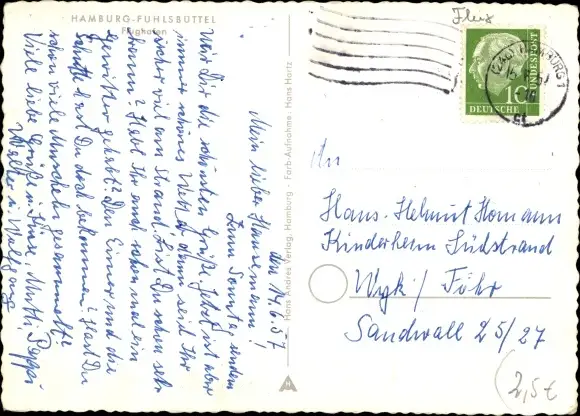 HAMBURG-FUHLSBÜTTEL
Flughafen
den 14.6.57
Mein lieber Hansemann!
Zum Sonntag senden
wir Dir die schönsten Grüße. Jetzt ist aber
immer schönes Wetter, dann seid Ihr
sicher viel am Strand. Bist Du schon sehr
braun? Habt Ihr auch schon mal ein
Gewitter gehabt? Den Eimer und die
Schaufel hast Du doch bekommen? Hast Du
schon viele Muscheln gesammelt?
Viele liebe Grüße v. Mutti, Pappi
Walter u. Wolfgang
Hans Andres Verlag, Hamburg · Farb-Aufnahme: Hans Hartz
Flux
HAMBURG 1
DEUTSCHE
BUNDESPOST
10
An
Hans-Helmut Homann
Kinderheim Südstrand
Wyk / Föhr
Sandwall 25/27
2,5€